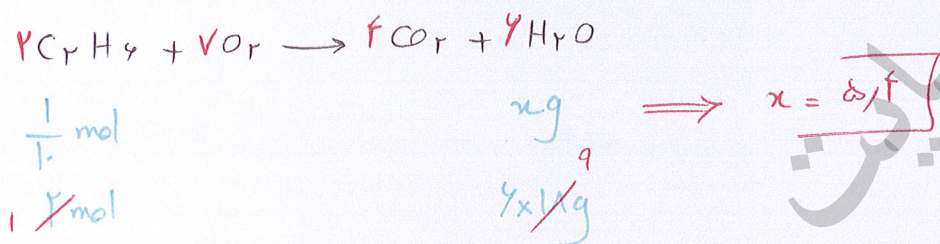 ۲C۲H۶ + ۷O۲ → ۴CO۲ + ۶H۲O
۱/۱۰ mol xg ⇒ x = ۵/۴
۱ ۲mol ۶×۱۸g ۹